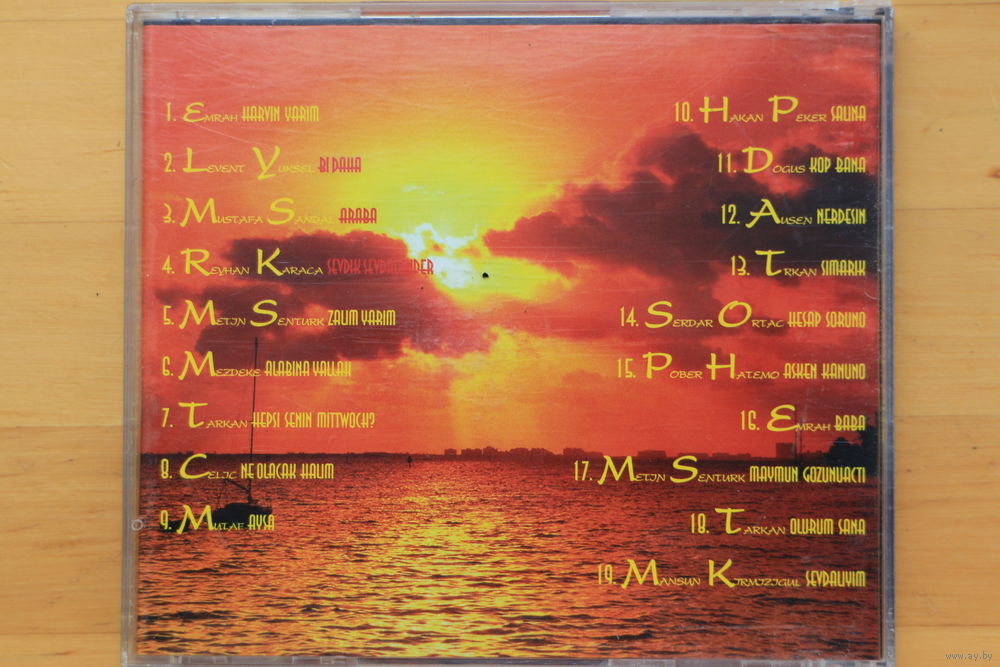 1. EMRAH HARVIN YARIM
2. LEVENT YUKSEL BI DAHA
3. MUSTAFA SANDAL ARABA
4. REYHAN KARACA SEVDIK SEVDALANDER
5. METIN SENTURK ZALIM YARIM
6. MEZDEKE ALABINA YALLAH
7. TARKAN HEPSI SENIN MITTWOCH?
8. CELIC NE OLACAK HALIM
9. MUTAF AYSA
10. HAKAN PEKER SALINA
11. DOGUS KOP BANA
12. AUSEN NERDESIN
13. TRKAN SIMARIK
14. SERDAR ORTAC HESAP SORUNO
15. POBER HATEMO ASKEN KANUNO
16. EMRAH BABA
17. METIN SENTURK MAYMUN GOZUNUACTI
18. TARKAN OLURUM SANA
19. MANSUN KIRMIZIGUL SEVDALIYIM
www.ay.by